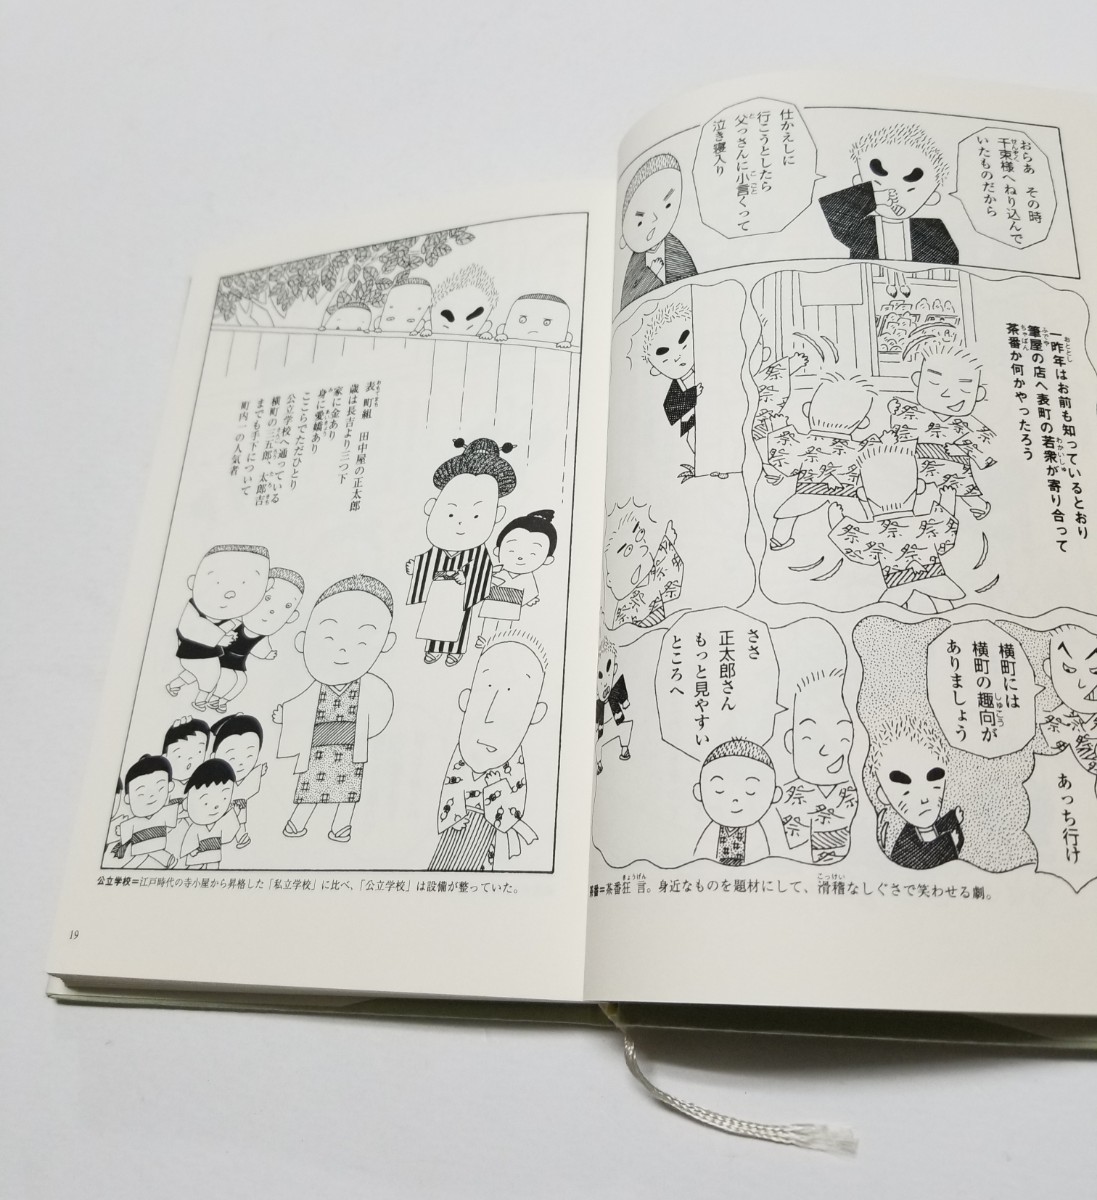 おらあ その時
千束様へねり込んで
いたものだから
仕かえしに
行こうとしたら
父っさんに小言くって
泣き寝入り
一昨年はお前も知っているとおり
筆屋の店へ表町の若衆が寄り合って
茶番か何かやったろう
あっち行け
横町には
横町の趣向が
ありましょう
ささ
正太郎さん
もっと見やすい
ところへ
茶番=茶番狂言。身近なものを題材にして、滑稽なしぐさで笑わせる劇。
表町組 田中屋の正太郎
歳は長吉より三つ下
家に金あり
身に愛嬌あり
ここらでただひとり
公立学校へ通っている
横町の三五郎、太郎吉
までも手下について
町内一の人気者
公立学校=江戸時代の寺小屋から昇格した「私立学校」に比べ、「公立学校」は設備が整っていた。
19